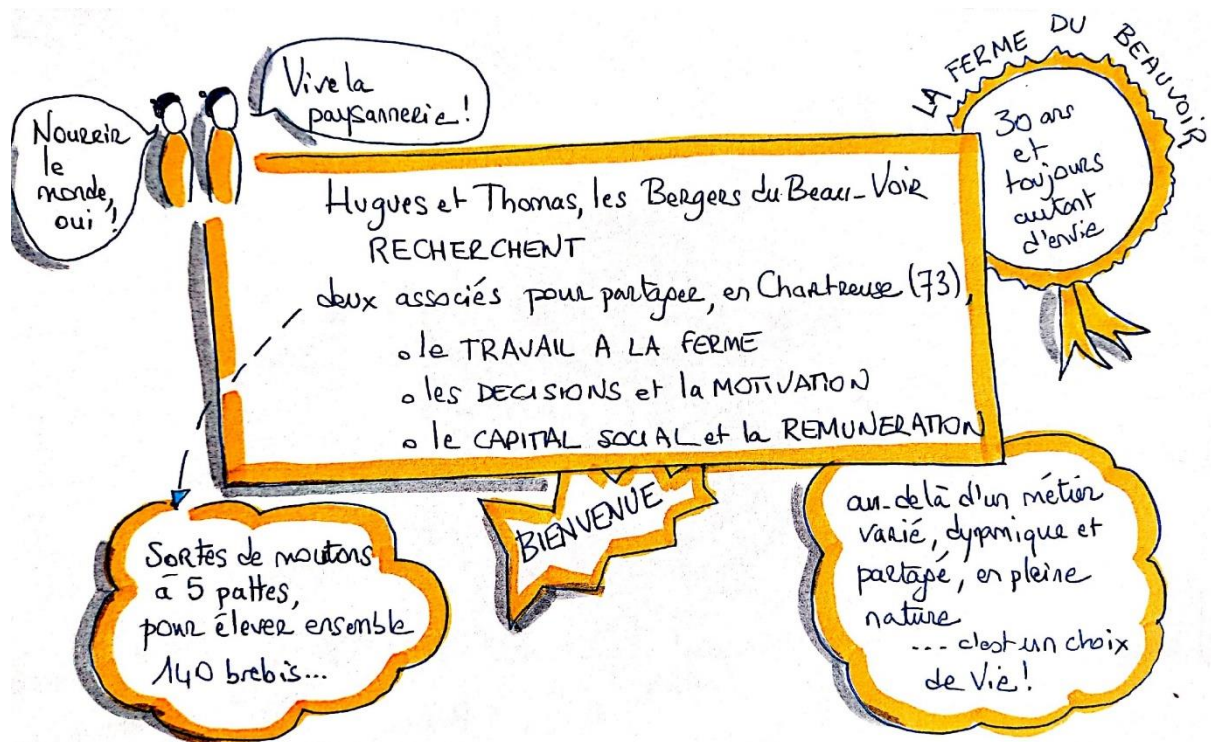 Nourrir
le
monde,
oui !
Vive la
paysannerie !
LA FERME DU BEAUVOIR
30 ans
et
toujours
autant
d'envie
Hugues et Thomas, les Bergers du Beau-Voir
RECHERCHENT
deux associés pour partager, en Chartreuse (73),
o le TRAVAIL A LA FERME
o les DECISIONS et la MOTIVATION
o le CAPITAL SOCIAL et la REMUNERATION
BIENVENUE
Sortes de moutons
à 5 pattes,
pour élever ensemble
140 brebis...
au-delà d'un métier
varié, dynamique et
partagé, en pleine
nature
... c'est un choix
de Vie !